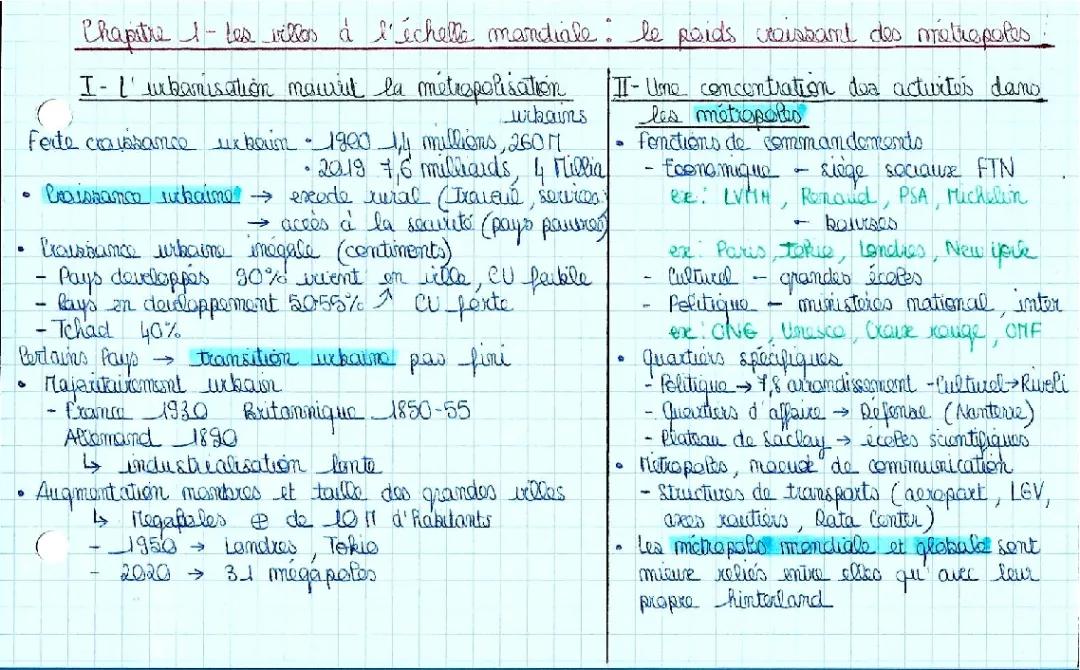 Chapitre 1 - Les villes à l'échelle mondiale : le poids croissant des métropoles :
I - L'urbanisation nourrit la métropolisation
urbains
Forte croissance urbain • 1900 1,4 millions, 260 M
• 2019 7,6 milliards, 4 Millia
• Croissance urbaine → exode rural (Travail, services)
→ accès à la sécurité (pays pauvres)
• Croissance urbaine inégale (continents)
- Pays développés 90% vivent en ville, CU faible
- Pays en développement 50-55% ↗ CU forte
- Tchad 40%
Certains Pays → transition urbaine pas fini
• Majoritairement urbain
- France 1930 Britannique 1850-55
Allemand 1890
↳ industrialisation lente
• Augmentation nombres et taille des grandes villes
↳ Megapoles ⊕ de 10 M d'habitants
- 1950 → Londres, Tokio
- 2020 → 31 mégapoles
II - Une concentration des activités dans
les métropoles
• Fonctions de commandements
- Economique - siège sociaux FTN
ex : LVMH, Renaud, PSA, Michelin
- bourses
ex : Paris, Tokio, Londres, New york
- Culturel - grandes écoles
- Politique - ministères national, inter
ex : ONG, Unesco, Croix rouge, OMF
• Quartiers spécifiques
- Politique → 7,8 arrondissement - Culturel → Rivoli
- Quartiers d'affaire → Défense (Nanterre)
- Plateau de Saclay → écoles scientifiques
• Métropoles, noeud de communication
- Structures de transports (aeroport, LGV,
axes routiers, Data Center)
• Les métropoles mondiale et globale sont
mieux reliés entre elles qu'avec leur
propre hinterland